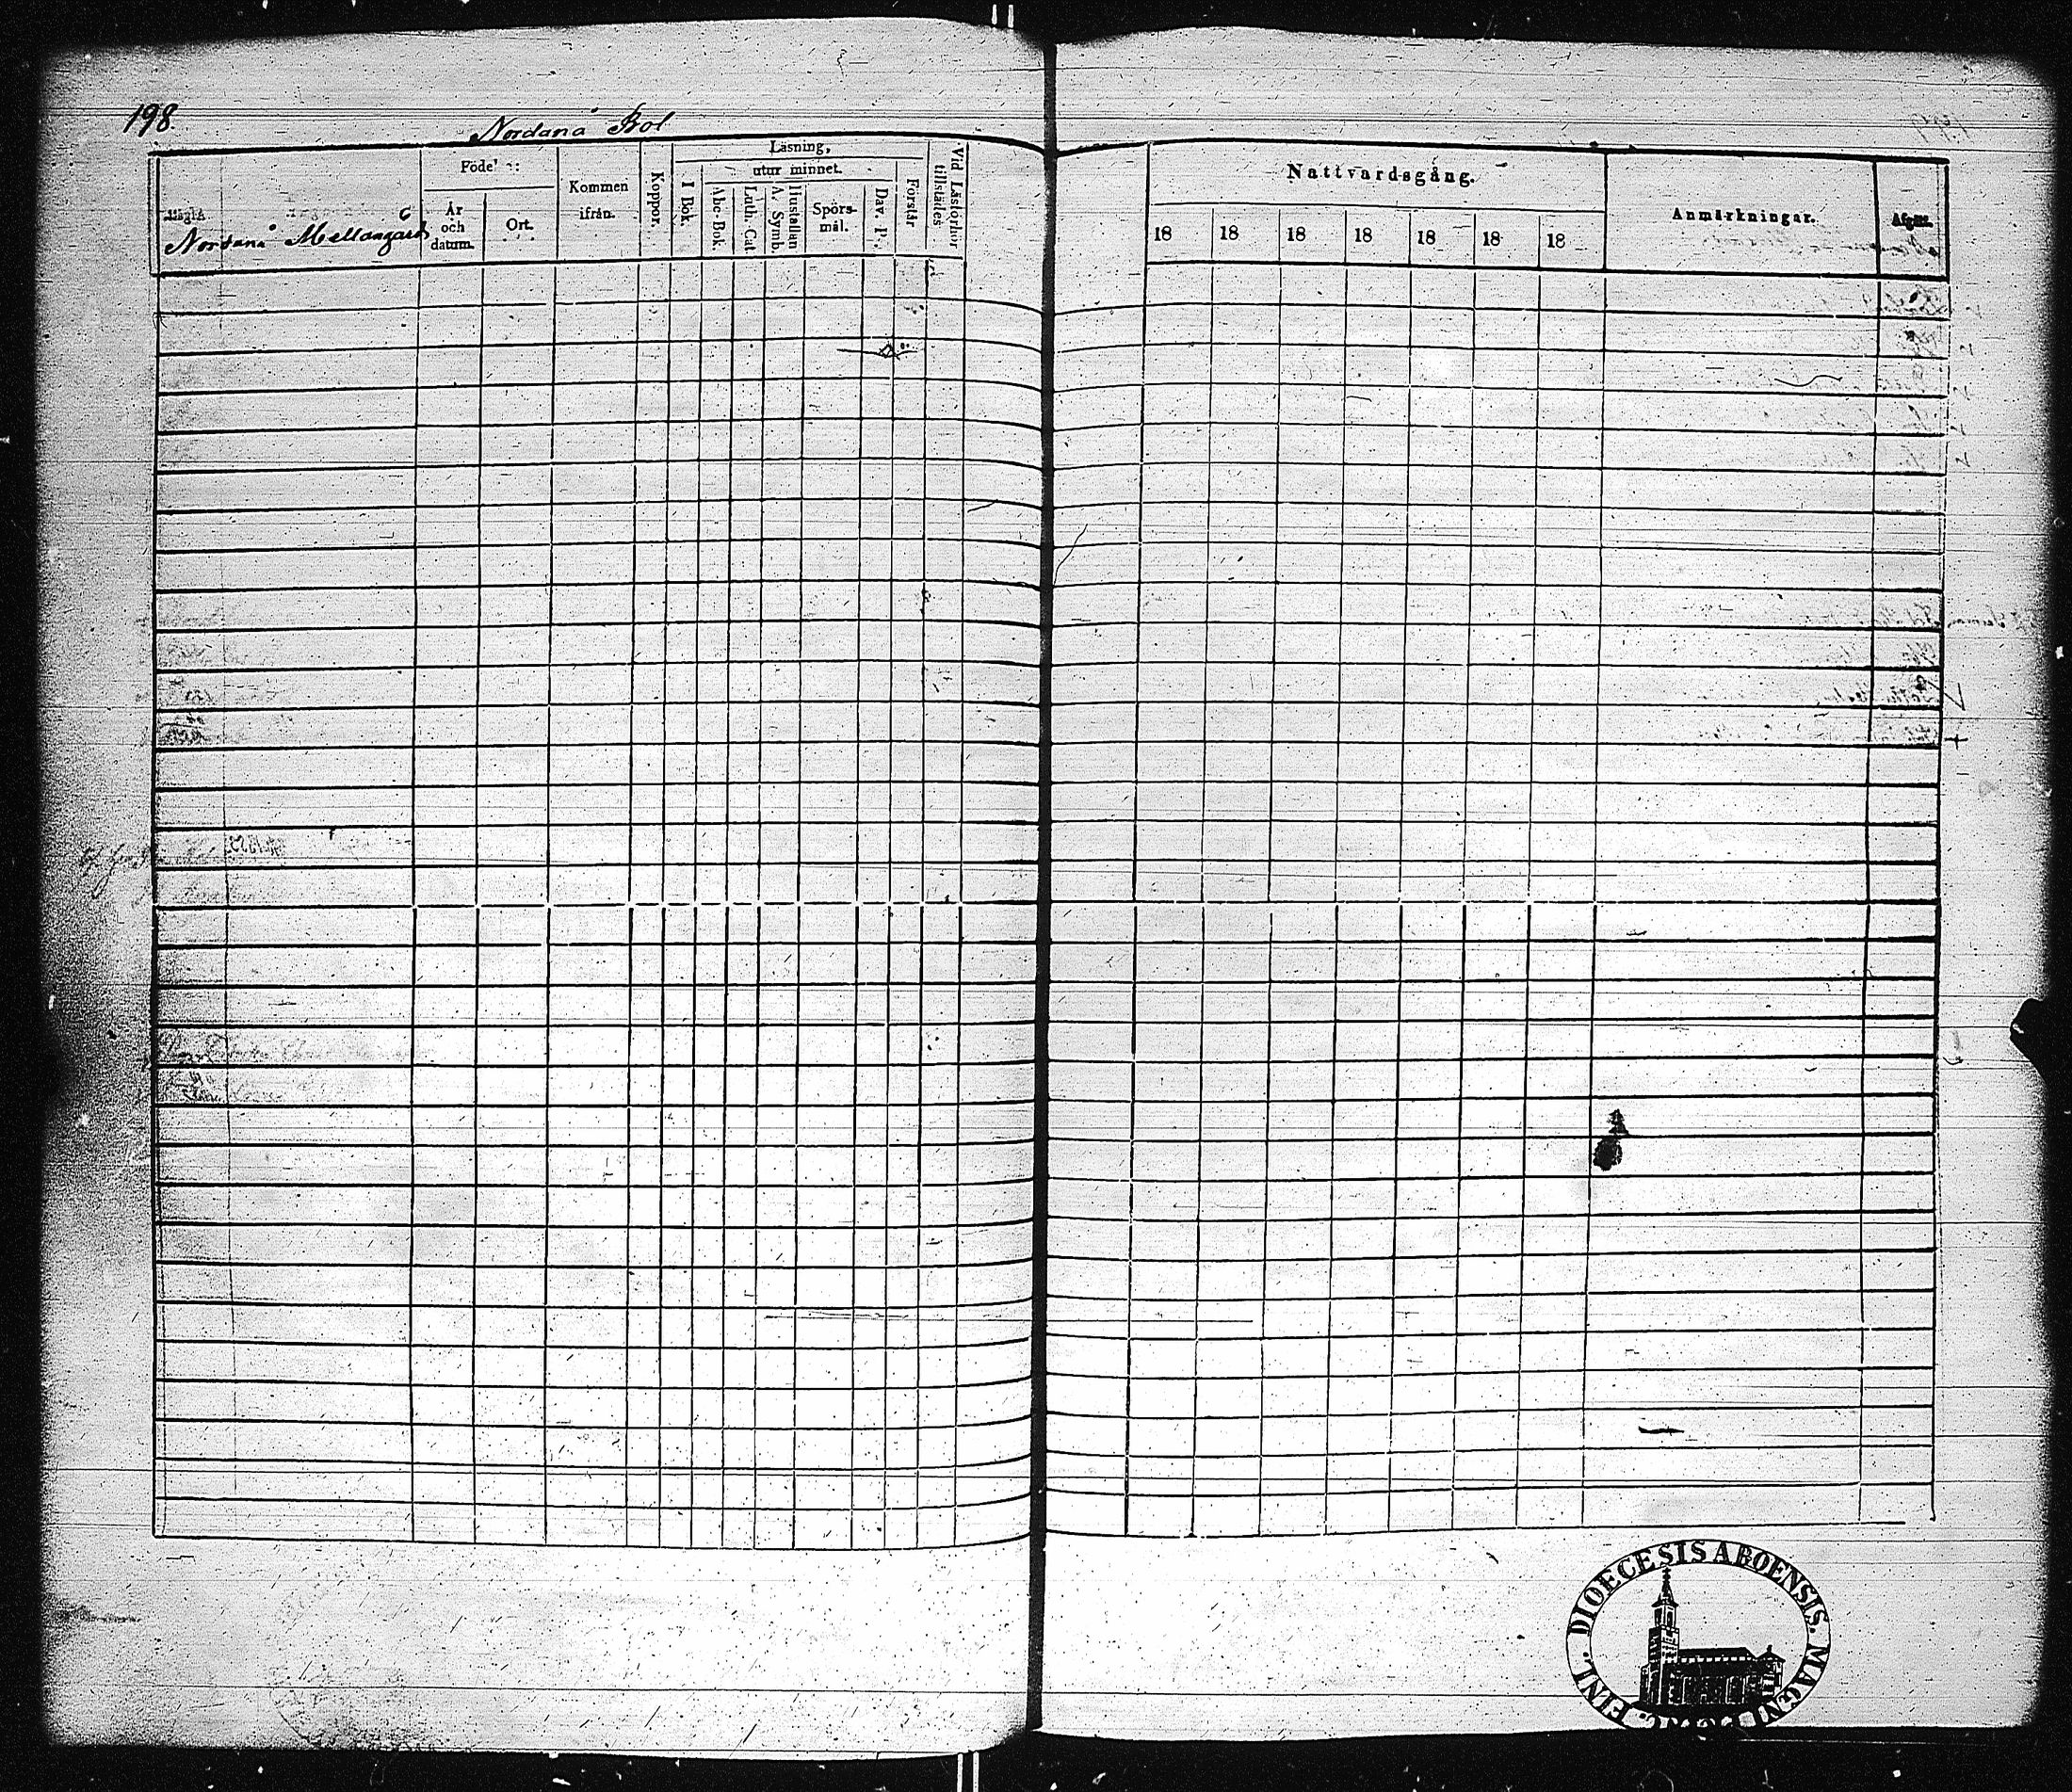 198.
Nordanå Bol
Nordanå Mellangård
Föde
År och datum.
Ort.
Kommen ifrån.
Koppor.
Läsning,
I Bok.
utur minnet.
Abc-Bok.
Luth. Cat.
Hustaflan A. Symb.
Spörsmål.
Dav. P.
Förstår
Vid Läsförhör tillstädes
Nattvardsgång.
18 18 18 18 18 18 18
Anmärkningar.
Afgått.
DIOECESIS ABOENSIS. MAGNI FINL.